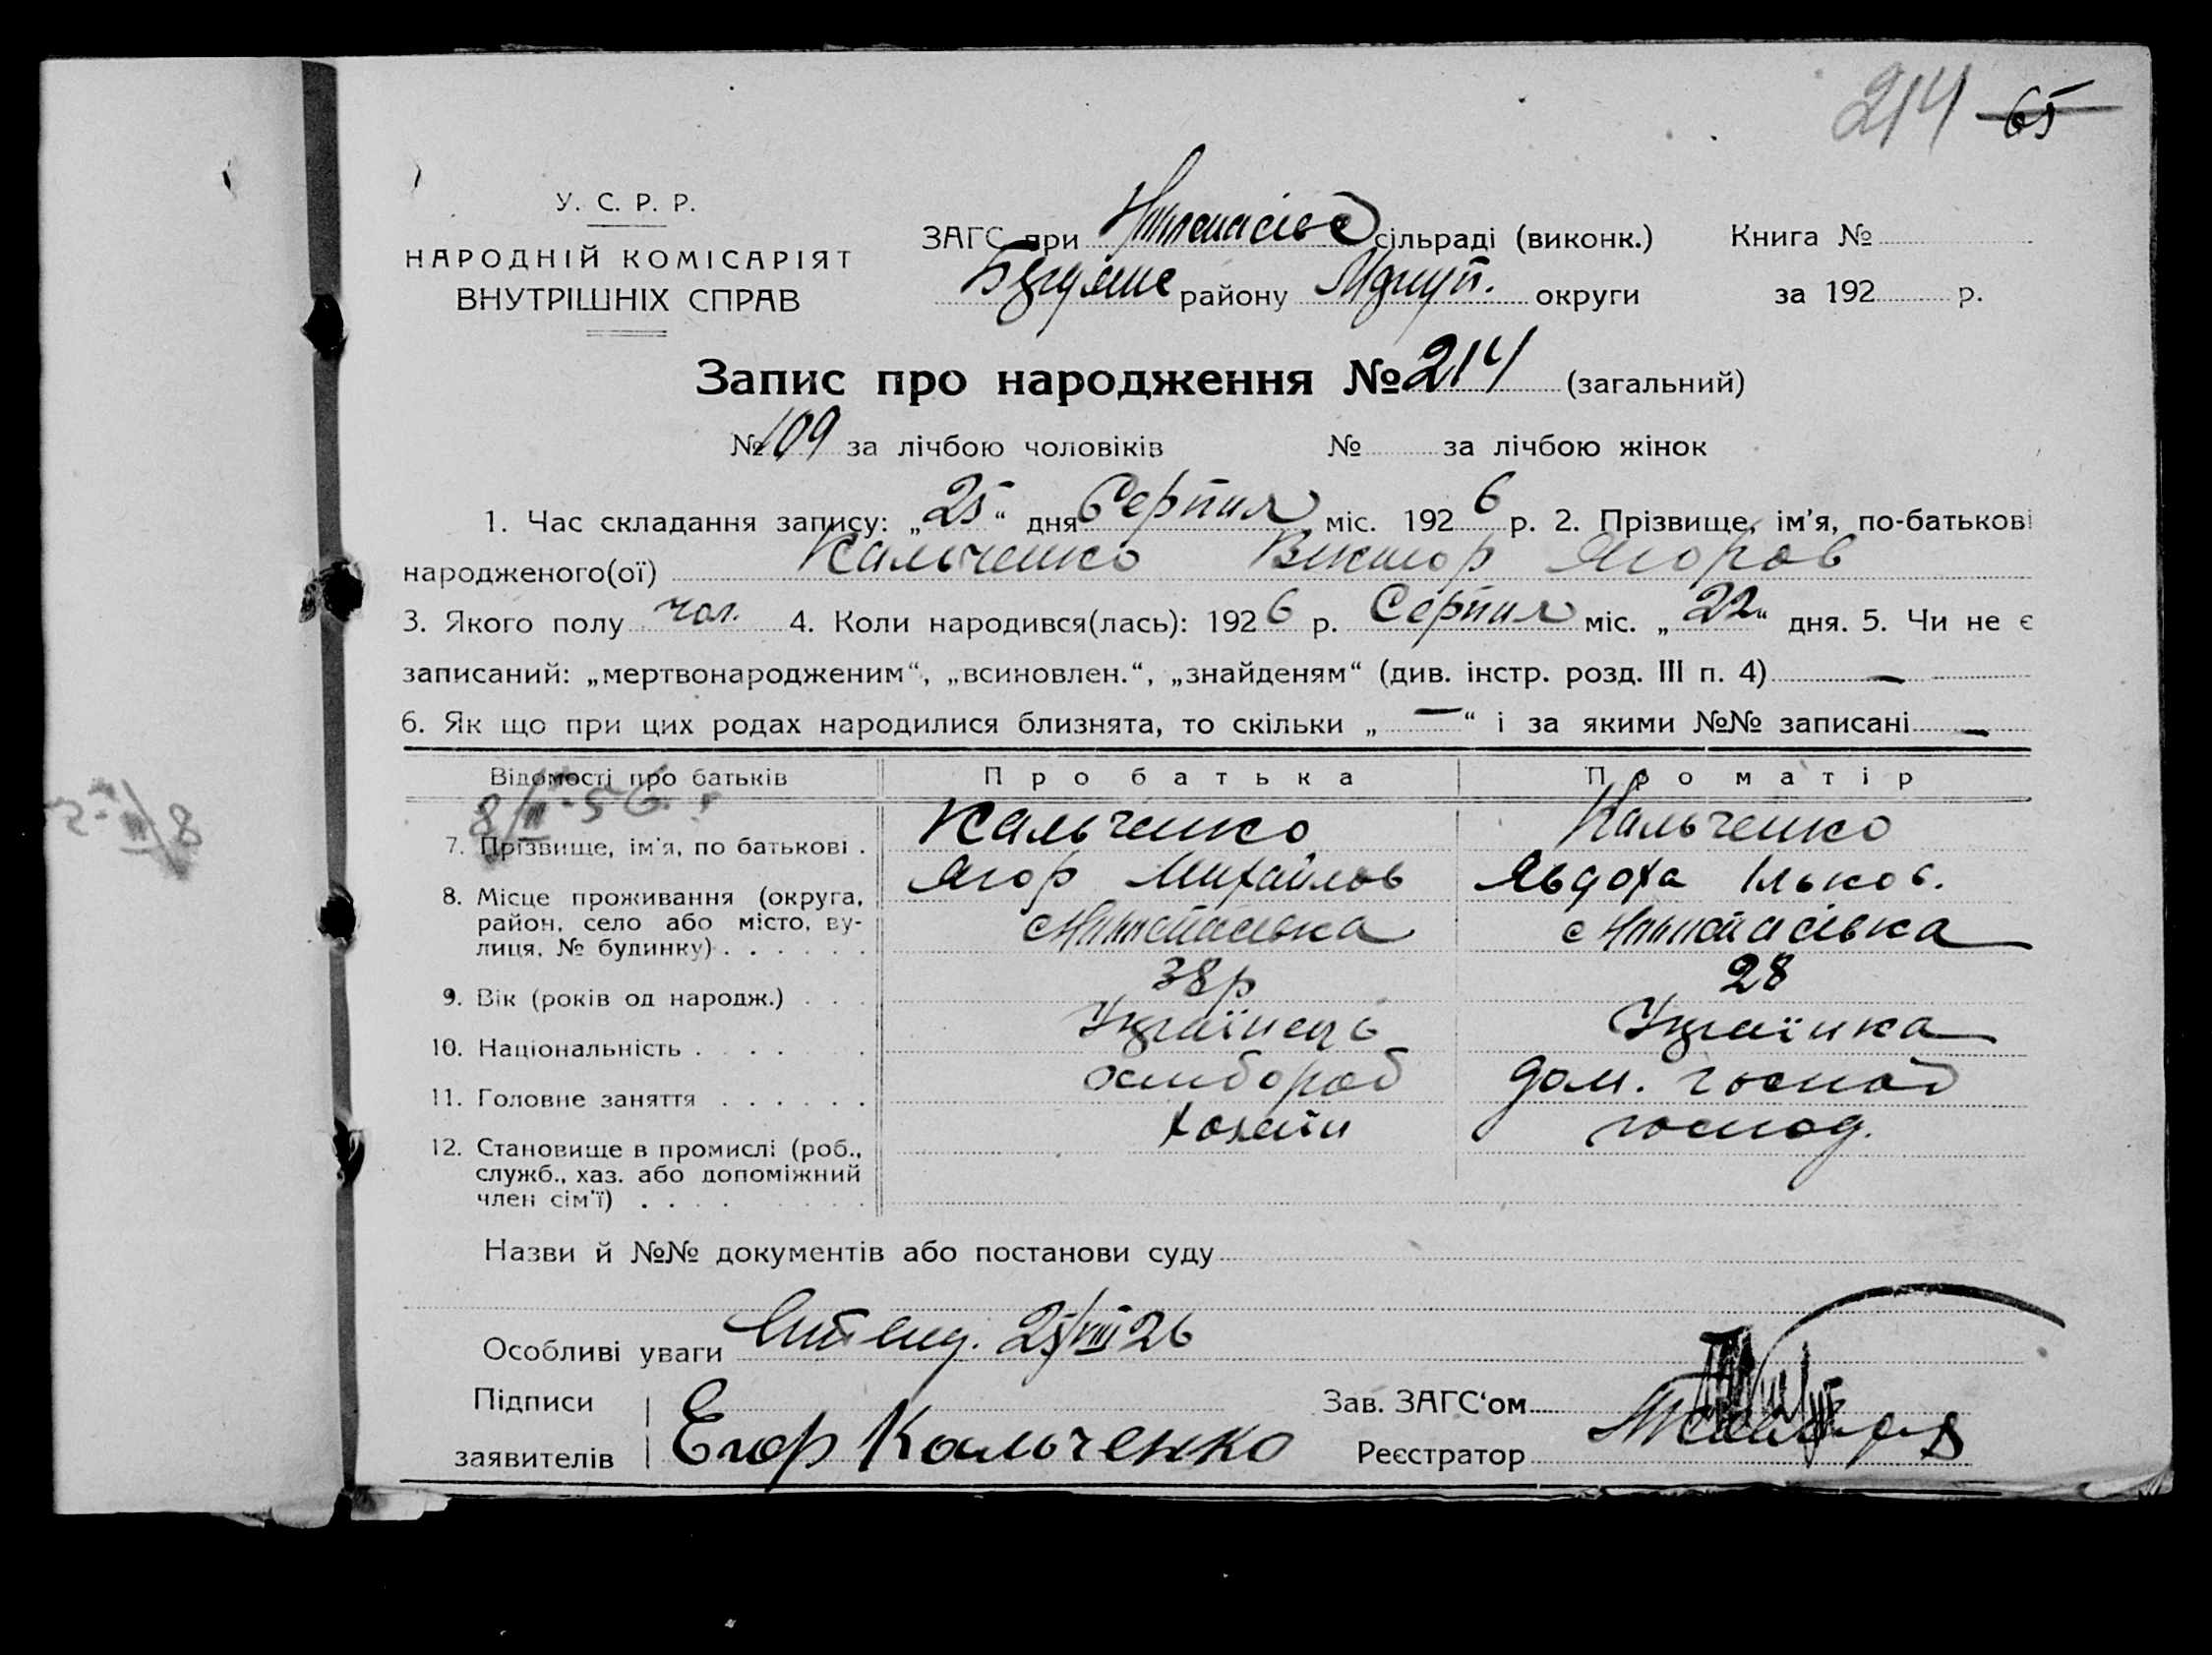 214 65
У. С. Р. Р.
НАРОДНІЙ КОМІСАРІЯТ
ВНУТРІШНІХ СПРАВ
ЗАГС при сільраді (виконк.) Книга №
району округи за 192 р.
Запис про народження № 214 (загальний)
№ 109 за лічбою чоловіків № за лічбою жінок
1. Час складання запису: „25“ дня Серпня міс. 1926 р. 2. Прізвище, ім'я, по-батькові
народженого(ої) Кальченко Віктор Ягоров
3. Якого полу чол. 4. Коли народився(лась): 1926 р. Серпня міс. „22“ дня. 5. Чи не є
записаний: „мертвонародженим“, „всиновлен.“, „знайденям“ (див. інстр. розд. III п. 4) —
6. Як що при цих родах народилися близнята, то скільки „—“ і за якими №№ записані —
Відомості про батьків Про батька Про матір
7. Прізвище, ім'я, по батькові . Кальченко Кальченко
Ягор Михайлов Явдоха Ільков.
8. Місце проживання (округа,
район, село або місто, ву-
лиця, № будинку) . . . . . .
9. Вік (років од народж.) . . . 38р 28
10. Національність . . . . . Українець Українка
11. Головне заняття . . . . . . хлибороб дом. господ
12. Становище в промислі (роб., хозяїн господ.
служб., хаз. або допоміжний
член сім'ї) . . . .
Назви й №№ документів або постанови суду
Особливі уваги 25/VIII 26
Підписи
заявителів Егор Кальченко
Зав. ЗАГС'ом
Реєстратор